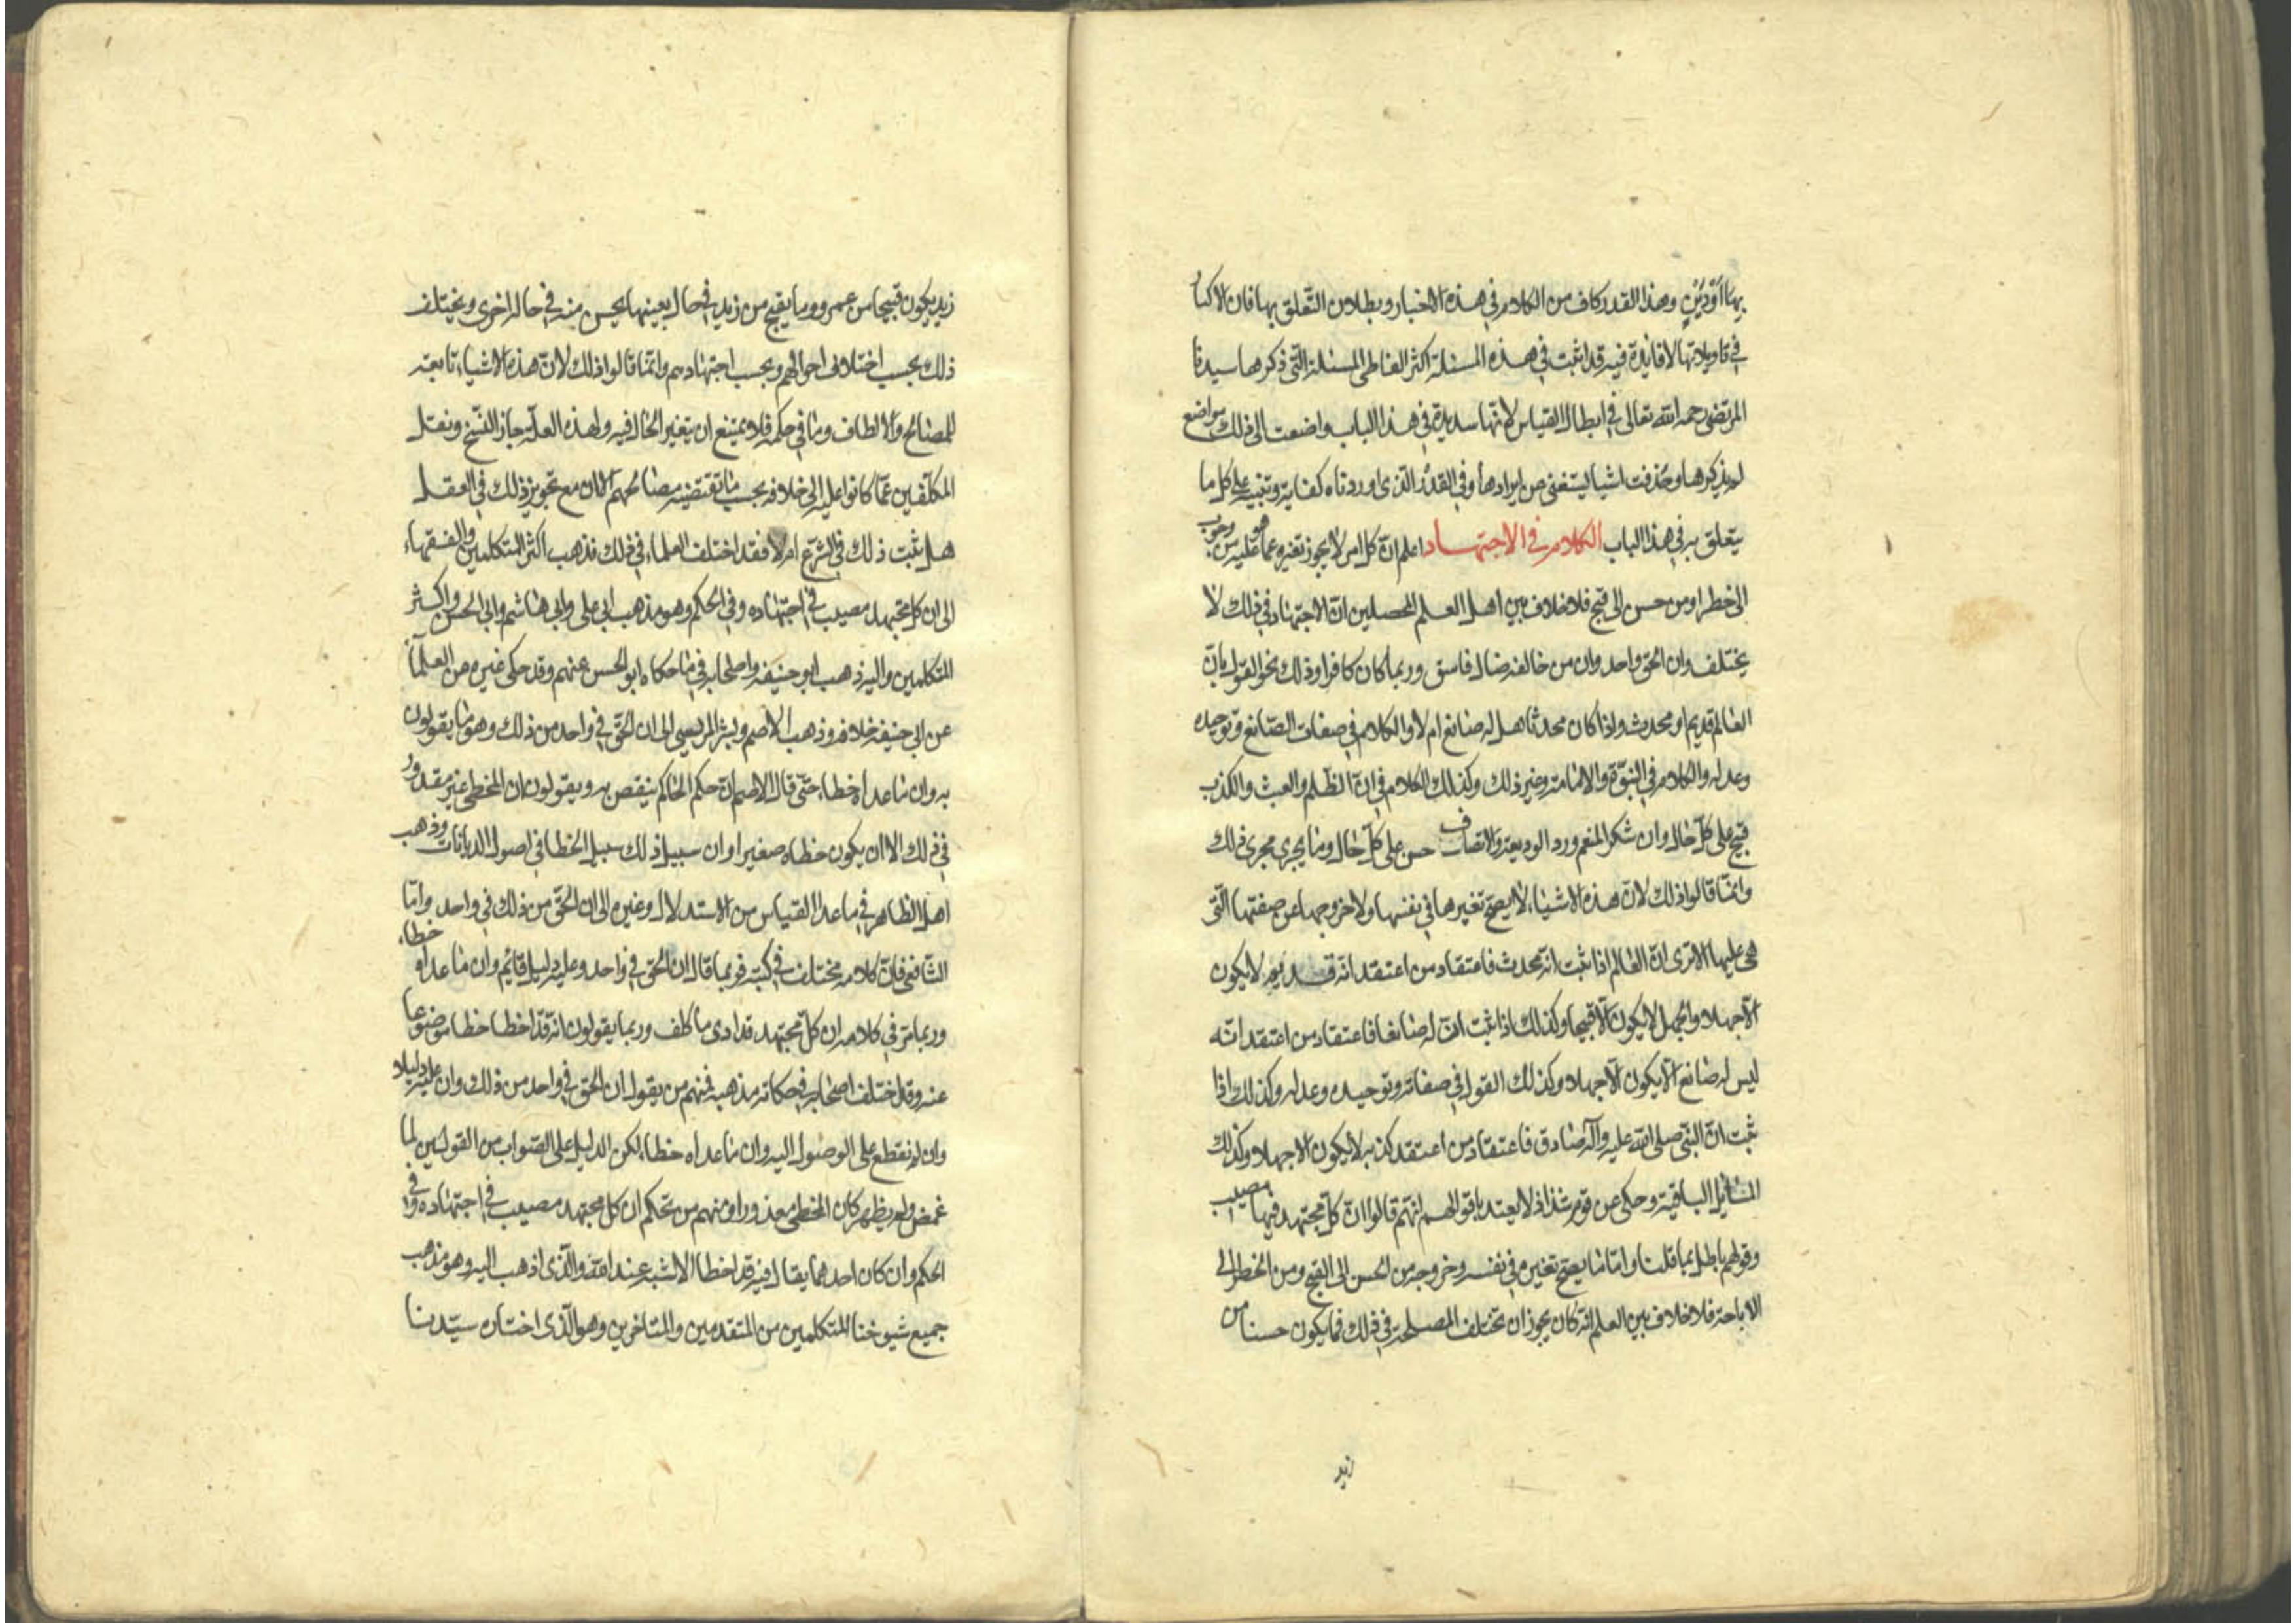 بها أَوْ دَيْنٍ وهذا القدر كاف من الكلام في هذه الاخبار وبطلان التّعلق بها فان الاكثار
في تاويلاتها لا فائدة فيه قد اثبت في هذه المسئلة اكثر الفاظ المسئلة التّي ذكرها سيدنا
المرتضى رحمه الله تعالى في ابطال القياس لانها سديدة في هذا الباب واضفت الى ذلك مواضع
لم يذكرها وحذفت اشيا يستغنى عن ايرادها وفي القدر الّذى اوردناه كفاية وتنبيه على كل ما
يتعلق به في هذا الباب الكلام في الاجتهاد اعلم انّ كل امر لا يجوز تغيره عما هو عليه من وجوب
الى خطر او من حسن الى قبح فلا خلاف بين اهل العلم المحصلين انّ الاجتهاد في ذلك لا
يختلف وان الحق واحد وان من خالفه ضال فاسق وربما كان كافرا وذلك نحو القول بانّ
العالم قديم او محدث واذا كان محدثا هل له صانع ام لا والكلام في صفات الصّانع وتوحيده
وعدله والكلام في النبّوة والامامة وغير ذلك وكذلك الكلام في انّ الظّلم والعبث والكذب
قبح على كلّ حال وان شكر المنعم ورد الوديعة والانصاف حسن على كلّ حال وما يجرى مجرى ذلك
وانمّا قالوا ذلك لانّ هذه الاشياء لا يصحّ تغيرها في نفسها ولا خروجها عن صفتها التّى
هى عليها الا ترى انّ العالم اذا ثبت انّه محدث فاعتقاد من اعتقد انّه قديم لا يكون
الّا جهلا والجهل لا يكون الّا قبيحا وكذلك اذا ثبت انّ له صانعا فاعتقاد من اعتقد انّه
ليس له صانع الّا يكون الّا جهلا وكذلك القول في صفاته وتوحيده وعدله وكذلك اذا
ثبت انّ النبّى صلى الله عليه وآله صادق فاعتقاد من اعتقد كذبه لا يكون الا جهلا وكذلك
المسائل الباقية وحكى عن قوم شذاذ لا يعتد باقوالهم انّهم قالوا انّ كلّ مجتهد فيها مصيب
وقولهم باطل بما قلنا وامّا ما يصحّ تغيره في نفسه وخروجه من الحسن الى القبح ومن الحظر الى
الاباحة فلا خلاف بين العلم انّه كان يجوز ان تختلف المصلحة في ذلك فما يكون حسنا من
زيد
زيد يكون قبيحا من عمرو وما يقبح من زيد في حال بعينها يحسن منه في حال اخرى ويختلف
ذلك بحسب اختلاف احوالهم وبحسب اجتهادهم وانّما قالوا ذلك لانّ هذه الاشياء تابعة
للمصالح والالطاف وما في حكمه فلا يمتنع ان يتغير الحال فيه ولهذه العلّة جاز النّسخ ونقل
المكلّفين عمّا كانوا عليه الى خلافه بحسب ما تقتضيه مصالحهم الّا ان مع تجويز ذلك في العقل
هل ثبت ذلك في الشّرع ام لا فقد اختلف العلماء في ذلك فذهب اكثر المتكلمين والفقهاء
الى ان كل مجتهد مصيب في اجتهاده وفي الحكم وهو مذهب ابى على وابي هاشم وابي الحسن واكثر
المتكلمين واليه ذهب ابو حنيفه واصحابه في ما حكاه ابو الحسن عنهم وقد حكى غيره من العلماء
عن ابى حنيفه خلافه وذهب الاصم وبشر المريسى الى ان الحقّ في واحد من ذلك وهو ما يقولون
به وان ما عداه خطاء حتّى قال الاصم انّ حكم الحاكم ينقض به ويقولون ان المخطى غير معذور
في ذلك الا ان يكون خطاه صغيرا وان سبيل ذلك سبيل الخطا في اصول الديانات وذهب
اهل الظاهر في ما عدا القياس من الاستدلال وغيره الى ان الحقّ من ذلك في واحد وامّا
الشّافعى فانّ كلامه مختلف في كتبه فربما قال ان الحق في واحد وعليه دليل قائم وان ما عداه خطاء
وربما مرّ في كلامه ان كلّ مجتهد قد ادى ما كلف وربما يقولون انّه قد اخطا خطا موضوعا
عنه وقد اختلف اصحابه في حكاية مذهبه فمنهم من يقول ان الحق في واحد من ذلك وان عليه دليلا
وان لم نقطع على الوصول اليه وان ما عداه خطاء لكن الدليل على الصّواب من القولين لما
غمض ولم يظهر كان المخطى معذورا ومنهم من يحكم ان كل مجتهد مصيب في اجتهاده وفي
الحكم وان كان احدهما يقال فيه قد اخطا الاشبه عند الله والّذى اذهب اليه وهو مذهب
جميع شيوخنا المتكلمين من المتقدمين والمتاخرين وهو الّذى اختاره سيّدنا